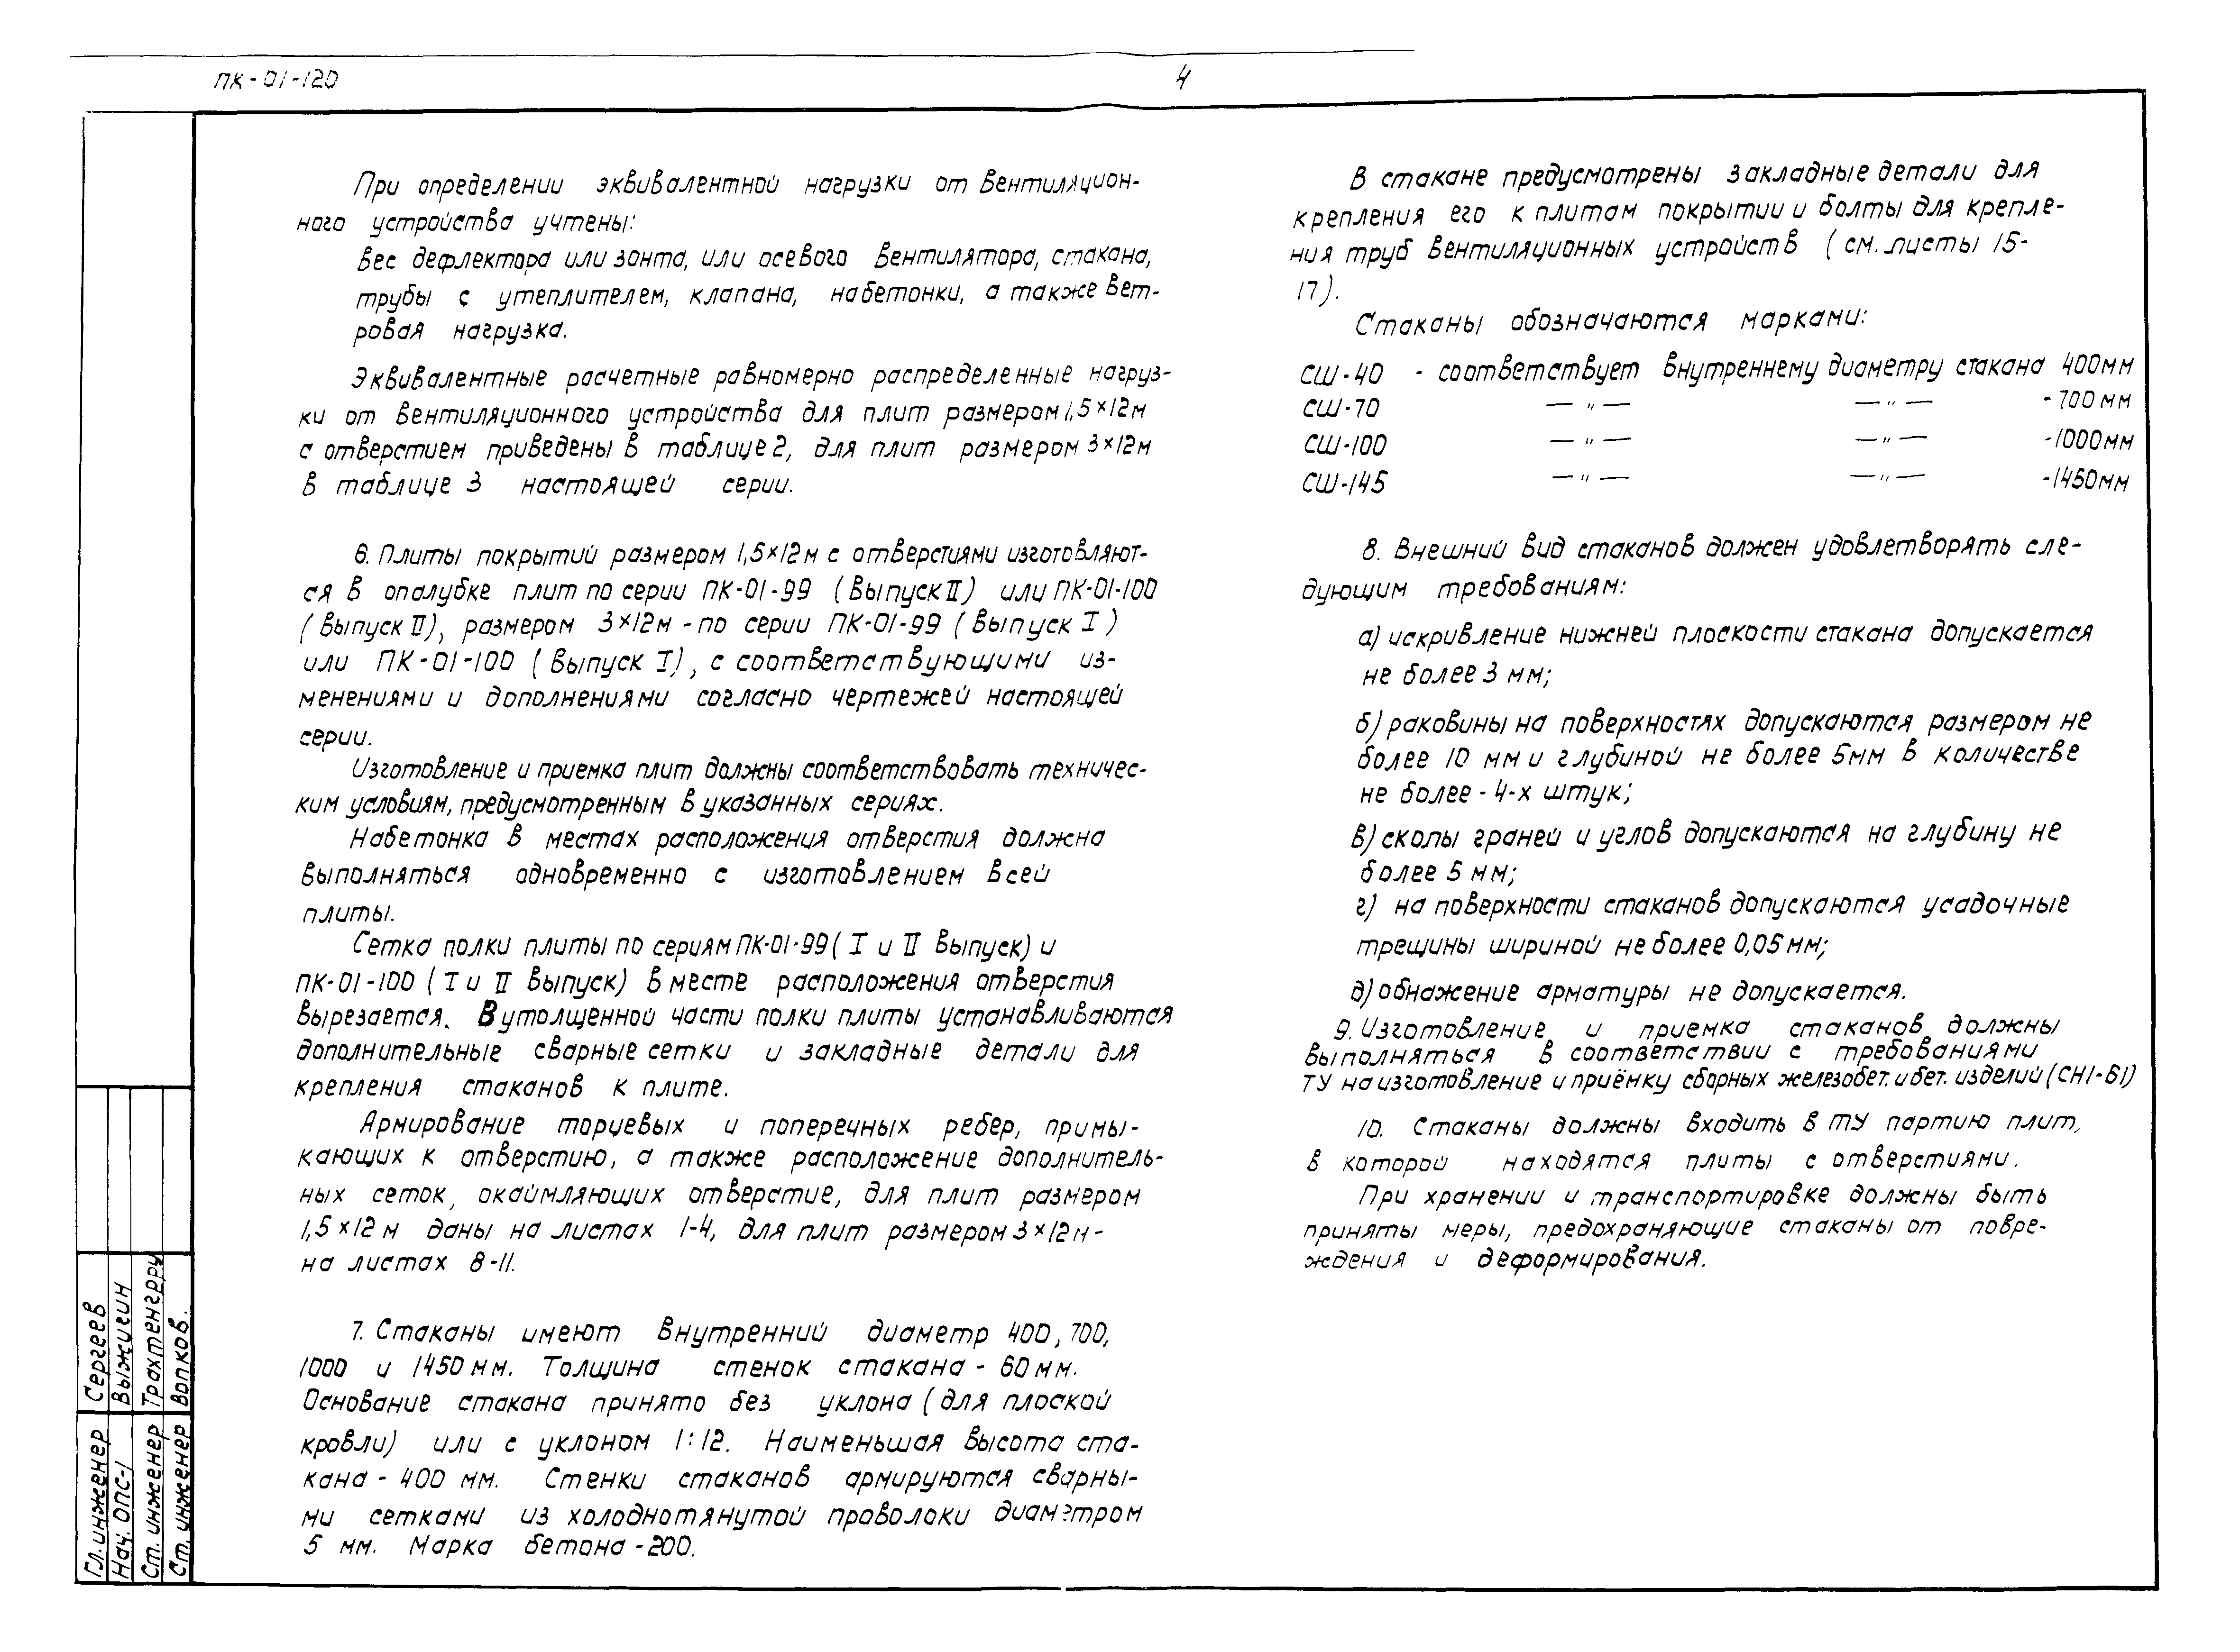 ПК-01-120
4
При определении эквивалентной нагрузки от вентиляцион-
ного устройства учтены:
вес дефлектора или зонта, или осевого вентилятора, стакана,
трубы с утеплителем, клапана, набетонки, а также вет-
ровая нагрузка.
Эквивалентные расчетные равномерно распределенные нагруз-
ки от вентиляционного устройства для плит размером 1,5×12м
с отверстием приведены в таблице 2, для плит размером 3×12м
в таблице 3 настоящей серии.
6. Плиты покрытий размером 1,5×12м с отверстиями изготовляют-
ся в опалубке плит по серии ПК-01-99 (Выпуск II) или ПК-01-100
(Выпуск II), размером 3×12м - по серии ПК-01-99 (Выпуск I)
или ПК-01-100 (Выпуск I), с соответствующими из-
менениями и дополнениями согласно чертежей настоящей
серии.
Изготовление и приемка плит должны соответствовать техничес-
ким условиям, предусмотренным в указанных сериях.
Набетонка в местах расположения отверстия должна
выполняться одновременно с изготовлением всей
плиты.
Сетка полки плиты по сериям ПК-01-99 (I и II Выпуск) и
ПК-01-100 (I и II Выпуск) в месте расположения отверстия
вырезается. В утолщенной части полки плиты устанавливаются
дополнительные сварные сетки и закладные детали для
крепления стаканов к плите.
Армирование торцевых и поперечных ребер, примы-
кающих к отверстию, а также расположение дополнитель-
ных сеток, окаймляющих отверстие, для плит размером
1,5×12м даны на листах 1-4, для плит размером 3×12м -
на листах 8-11.
7. Стаканы имеют внутренний диаметр 400, 700,
1000 и 1450мм. Толщина стенок стакана - 60мм.
Основание стакана принято без уклона (для плоской
кровли) или с уклоном 1:12. Наименьшая высота ста-
кана - 400 мм. Стенки стаканов армируются сварны-
ми сетками из холоднотянутой проволоки диаметром
5 мм. Марка бетона - 200.
В стакане предусмотрены закладные детали для
крепления его к плитам покрытии и болты для крепле-
ния труб вентиляционных устройств (см. листы 15-
17).
Стаканы обозначаются марками:
СШ-40 - соответствует внутреннему диаметру стакана 400мм
СШ-70 — „ — — „ — - 700мм
СШ-100 — „ — — „ — - 1000мм
СШ-145 — „ — — „ — - 1450мм
8. Внешний вид стаканов должен удовлетворять сле-
дующим требованиям:
а) искривление нижней плоскости стакана допускается
не более 3 мм;
б) раковины на поверхностях допускаются размером не
более 10 мм и глубиной не более 5мм в количестве
не более - 4-х штук;
в) сколы граней и углов допускаются на глубину не
более 5 мм;
г) на поверхности стаканов допускаются усадочные
трещины шириной не более 0,05мм;
д) обнажение арматуры не допускается.
9. Изготовление и приемка стаканов должны
выполняться в соответствии с требованиями
ТУ на изготовление и приёмку сборных железобет. и бет. изделий (СН1-61)
10. Стаканы должны входить в ту партию плит,
в которой находятся плиты с отверстиями.
При хранении и транспортировке должны быть
приняты меры, предохраняющие стаканы от повре-
ждения и деформирования.
Гл. инженер Сергеев
Нач. ОПС-1 Выжигин
Ст. инженер Трахтенгерц
Ст. инженер Волков.